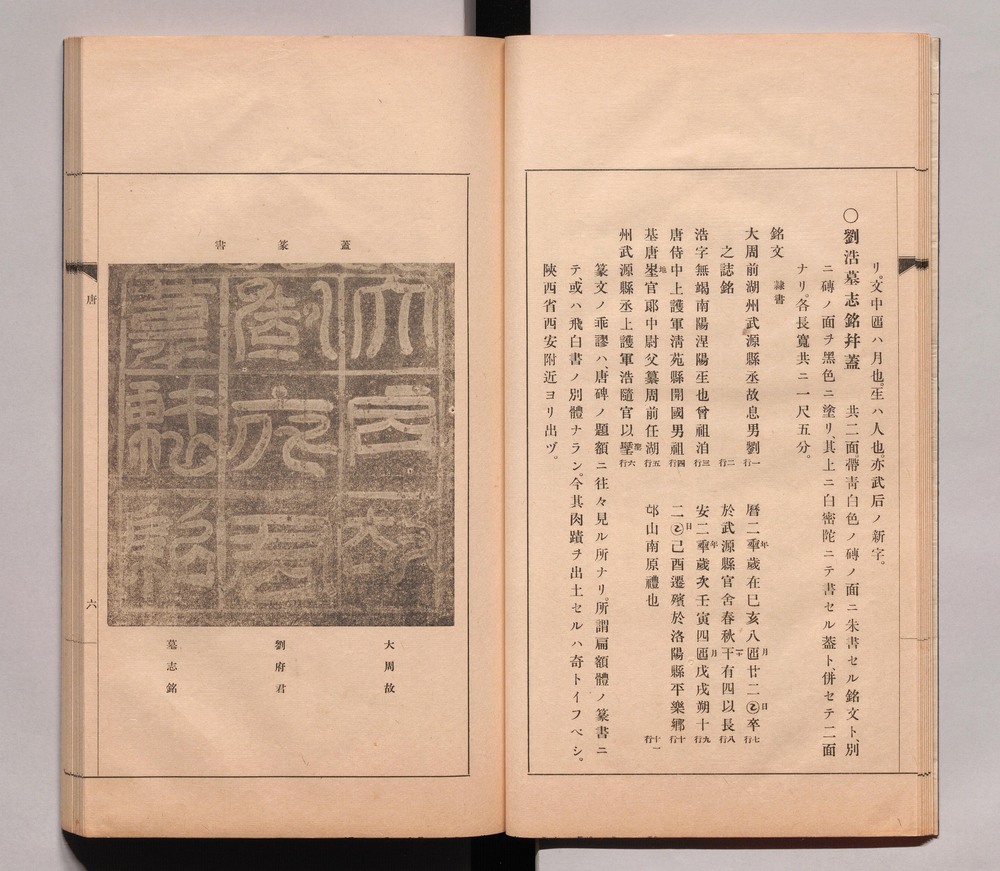 リ。文中囸ハ月也。𤯔ハ人也。亦武后ノ新字。
○劉浩墓志銘幷蓋　共二面。帶靑白色ノ磚ノ面ニ朱書セル銘文ト、別
ニ磚ノ面ヲ黑色ニ塗リ、其上ニ白密陀ニテ書セル蓋ト、併セテ二面
ナリ。各長寬共ニ一尺五分。
銘文　隸書
大周前湖州武源縣丞故息男劉一行
之誌銘二行
浩字無竭南陽涅陽𤯔也曾祖洎三行
唐侍中上護軍淸苑縣開國男祖四行
基唐埊地官郞中尉父纂周前任湖五行
州武源縣丞上護軍浩隨官以𨲢聖六行
曆二𠡦年歲在巳亥八囸月廿二㋛日卒七行
於武源縣官舍春秋干十有四以長八行
安二𠡦年歲次壬寅四囸月戊戌朔十九行
二㋛日己酉遷殯於洛陽縣平樂鄕十行
邙山南原禮也十一行
篆文ノ乖謬ハ、唐碑ノ題額ニ往々見ル所ナリ。所謂扁額體ノ篆書ニ
テ、或ハ飛白書ノ別體ナラン。今其肉蹟ヲ出土セルハ奇トイフベシ。
陝西省西安附近ヨリ出ヅ。
蓋篆書
大周故
劉府君
墓志銘
大周故
劉府君
墓志銘
唐
六